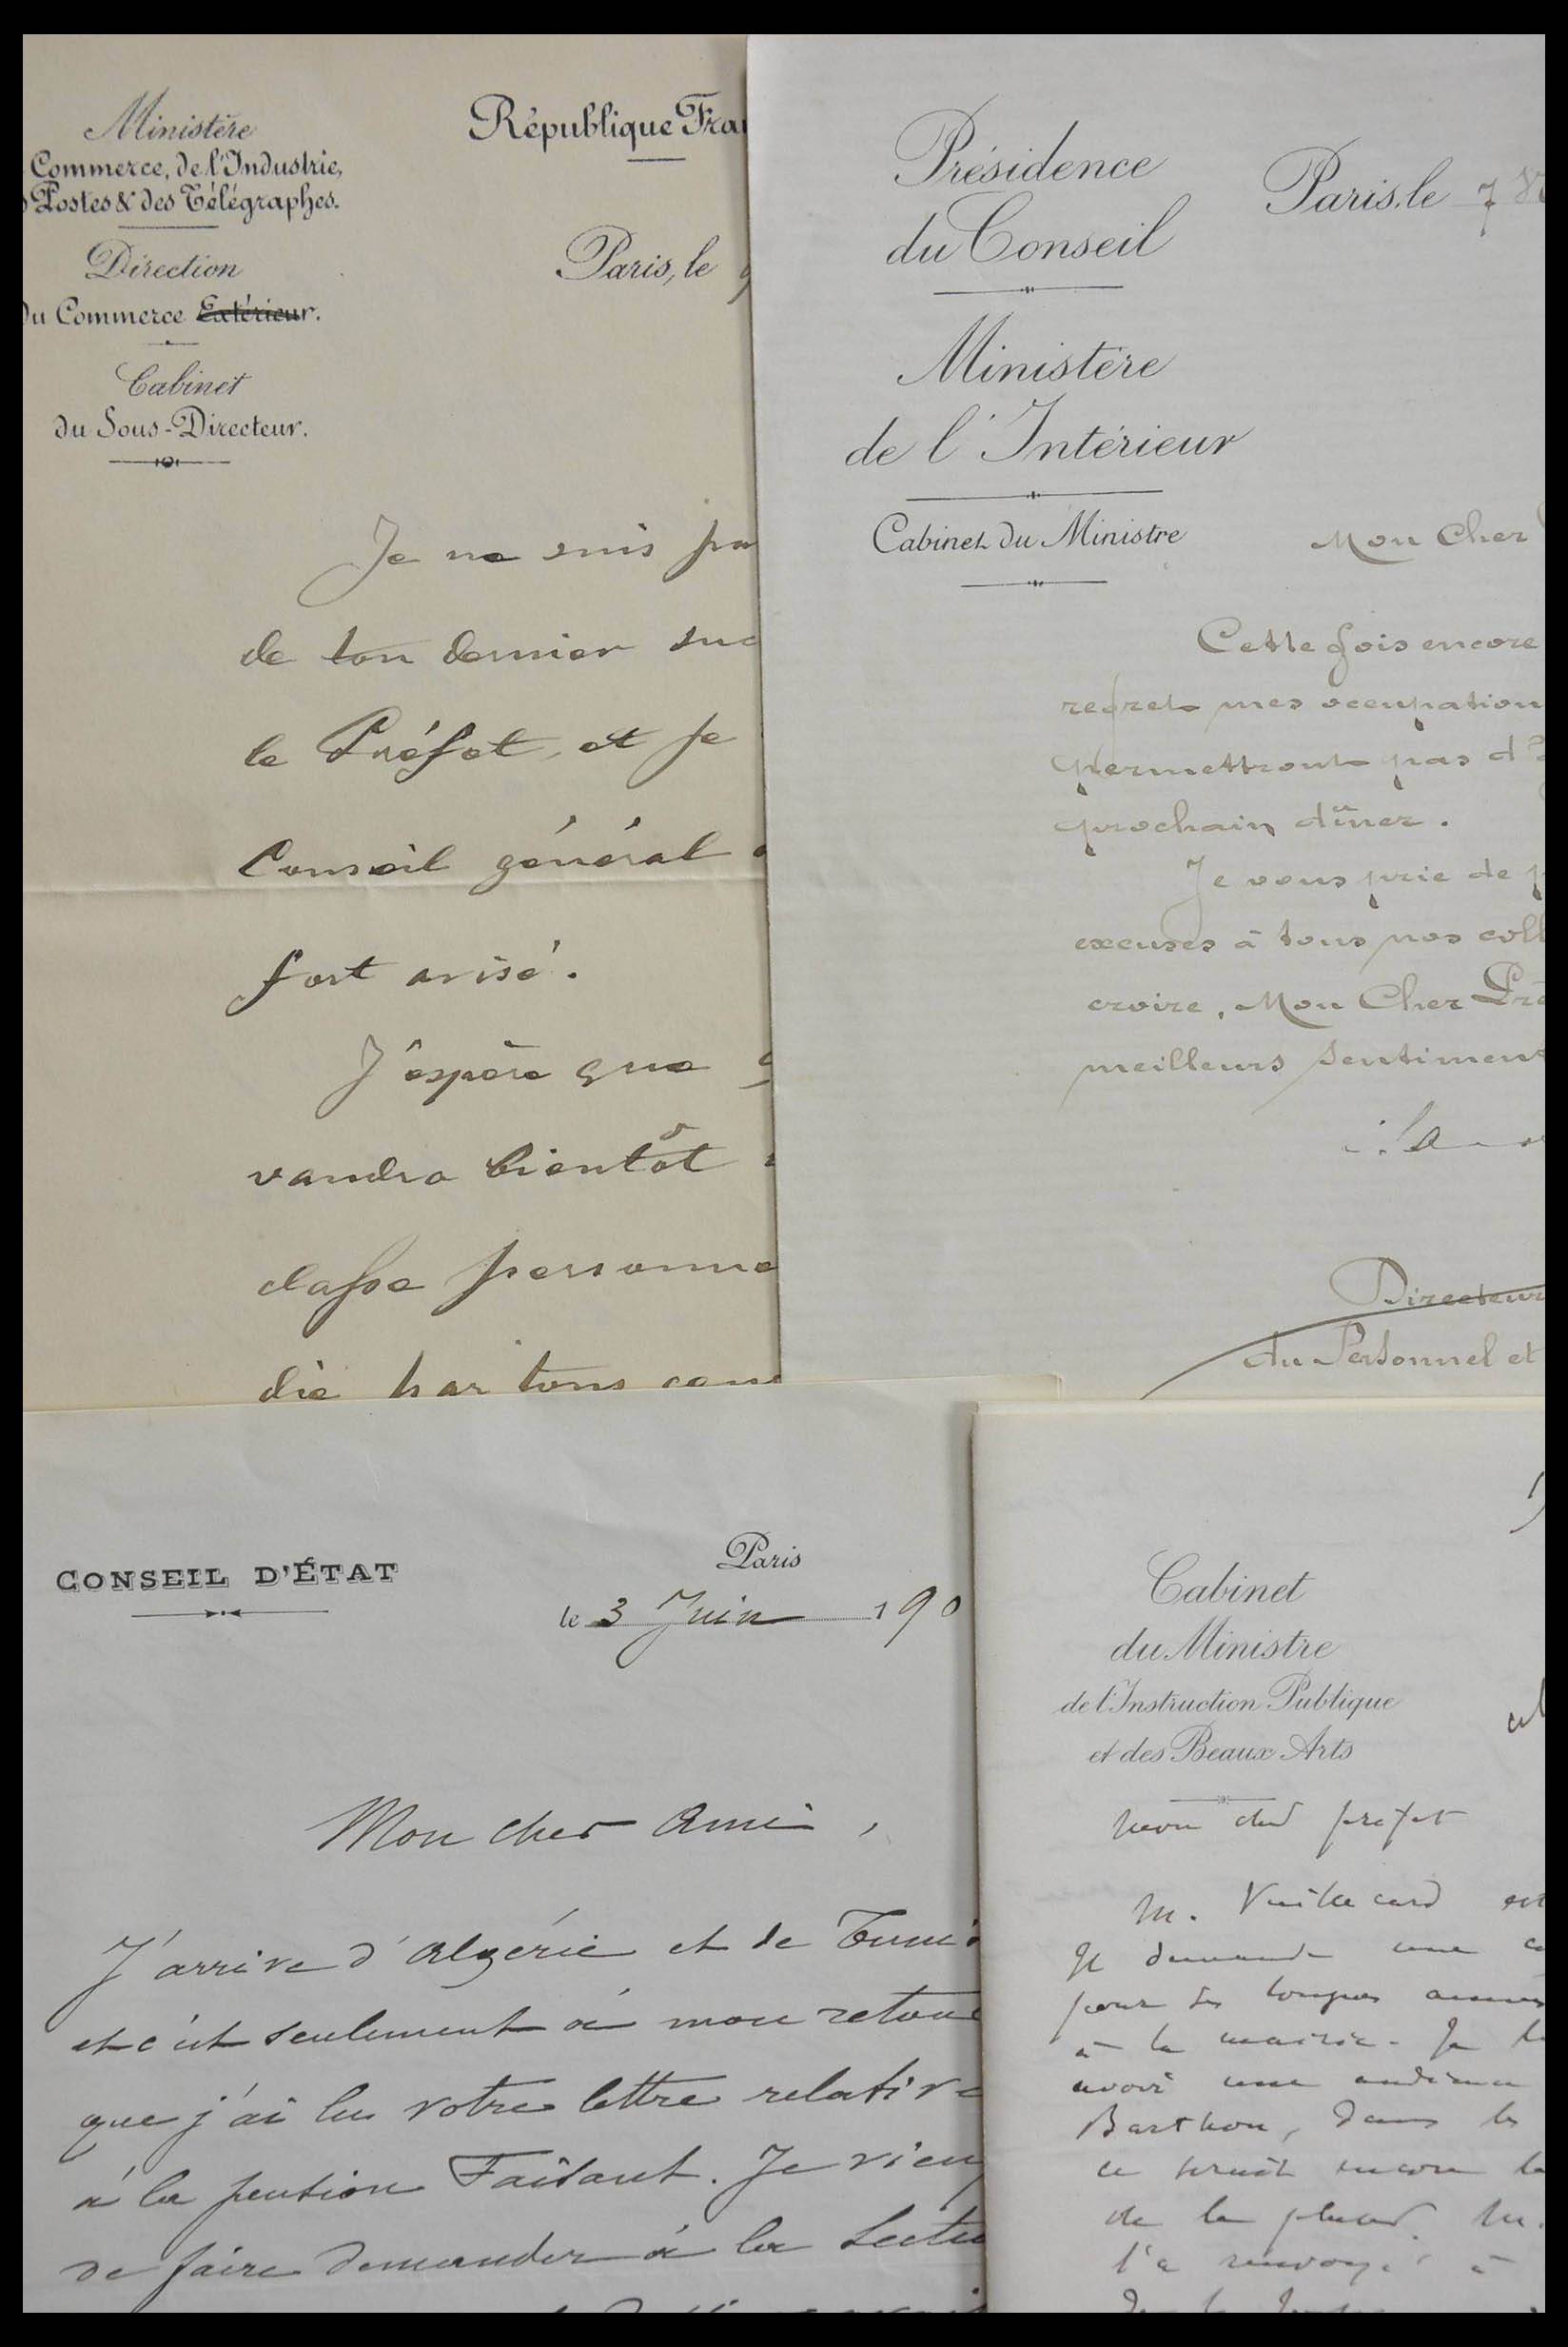 Ministère
Commerce, de l'Industrie,
Postes & des Télégraphes.
Direction
du Commerce Extérieur.
Cabinet
du Sous-Directeur.
République Fra
Paris, le
Je ne suis pa
de ton dernier suc
le Préfet, et je
Conseil général
fort avisé.
J'espère que
vandra bientôt
classe personne
dié par tous
Présidence
du Conseil
Paris, le 7
Ministère
de l'Intérieur
Cabinet du Ministre
Mon Cher
Cette fois encore
regret mes occupation
permettront pas d'
prochain dîner.
Je vous prie de p
excuses à tous nos coll
croire, Mon Cher Pré
meilleurs sentiment
Directeur
du Personnel et
CONSEIL D'ÉTAT
Paris
le 3 Juin 190
Mon cher Ami,
J'arrive d'Algérie et de Tunis
et c'est seulement à mon retour
que j'ai lu votre lettre relative
à la pension Faisant. Je vien
de faire demander à la Sectio
Cabinet
du Ministre
de l'Instruction Publique
et des Beaux Arts
Mon cher préfet
M. Vuillecard est
Il demande une
pour ses longues années
à la mairie. Je
avoir une audience
Barthou, dans les
ce serait encore
de la placer. M.
l'a renvoyé à